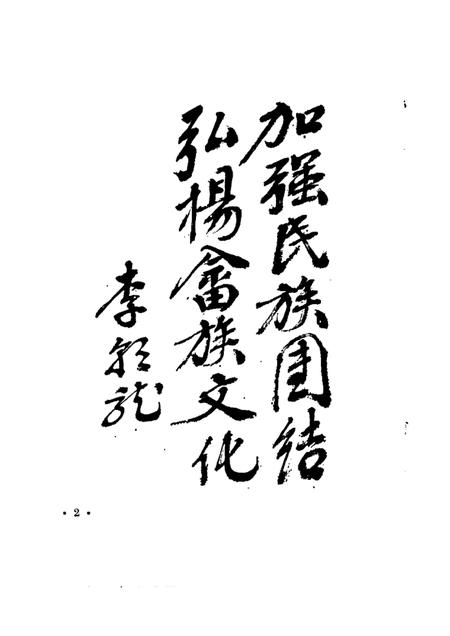 加强民族团结
弘杨畲族文化
李龙
• 2 •